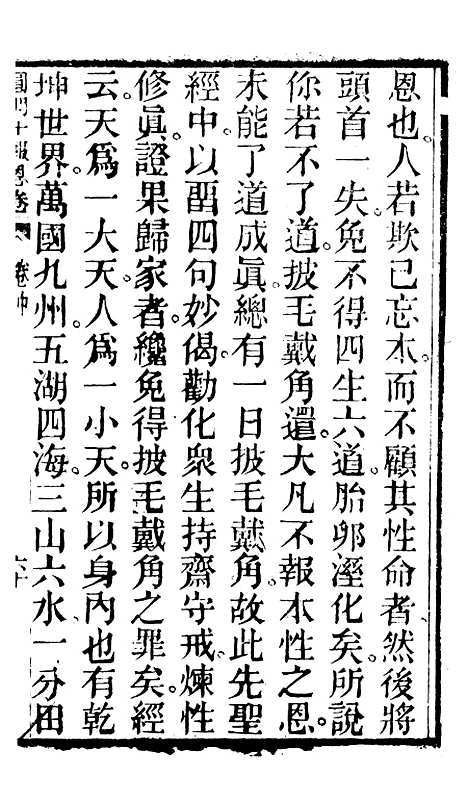 恩也人若欺己忘本而不顧其性命者然後將
頭首一失免不得四生六道胎卵溼化矣所說
你若不了道披毛戴角還大凡不報本性之恩
未能了道成眞總有一日披毛戴角故此先聖
經中以留四句妙偈勸化衆生持齋守戒煉性
修眞證果歸家者纔免得披毛戴角之罪矣經
云天爲一大天人爲一小天所以身內也有乾
坤世界萬國九州五湖四海三山六水一分田
十報恩卷 卷中 六十